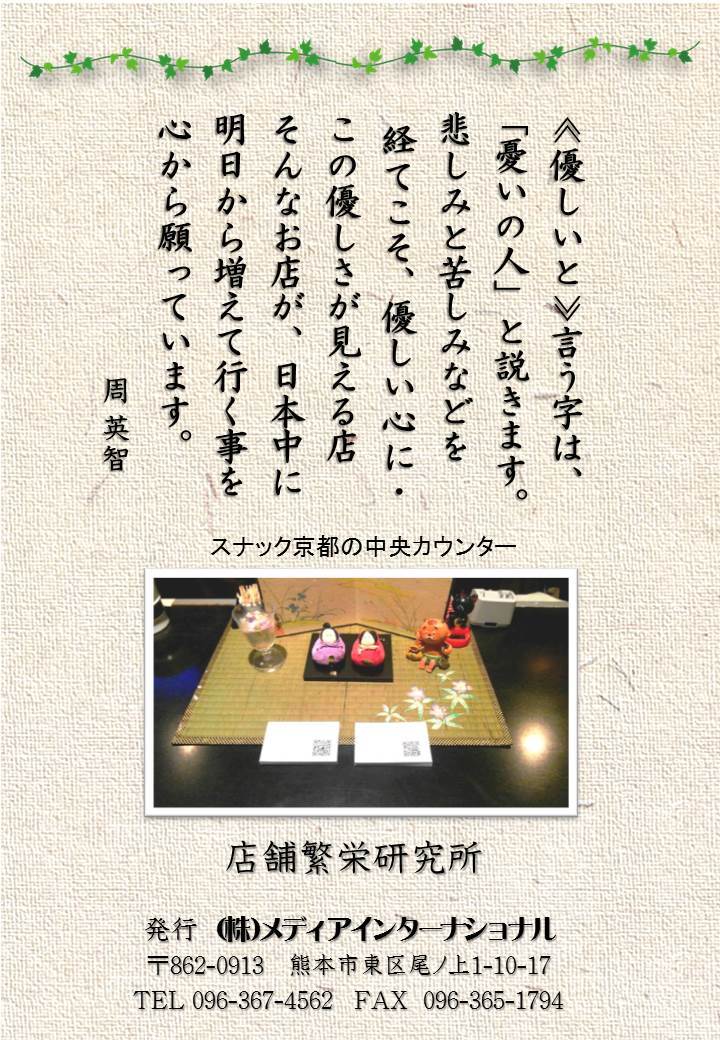 ≪優しいと≫言う字は、
「憂いの人」と説きます。
悲しみと苦しみなどを
経てこそ、優しい心に・
この優しさが見える店
そんなお店が、日本中に
明日から増えて行く事を
心から願っています。
周 英智
スナック京都の中央カウンター
店舗繁栄研究所
発行 (株)メディアインターナショナル
〒862-0913 熊本市東区尾ノ上1-10-17
TEL 096-367-4562 FAX 096-365-1794